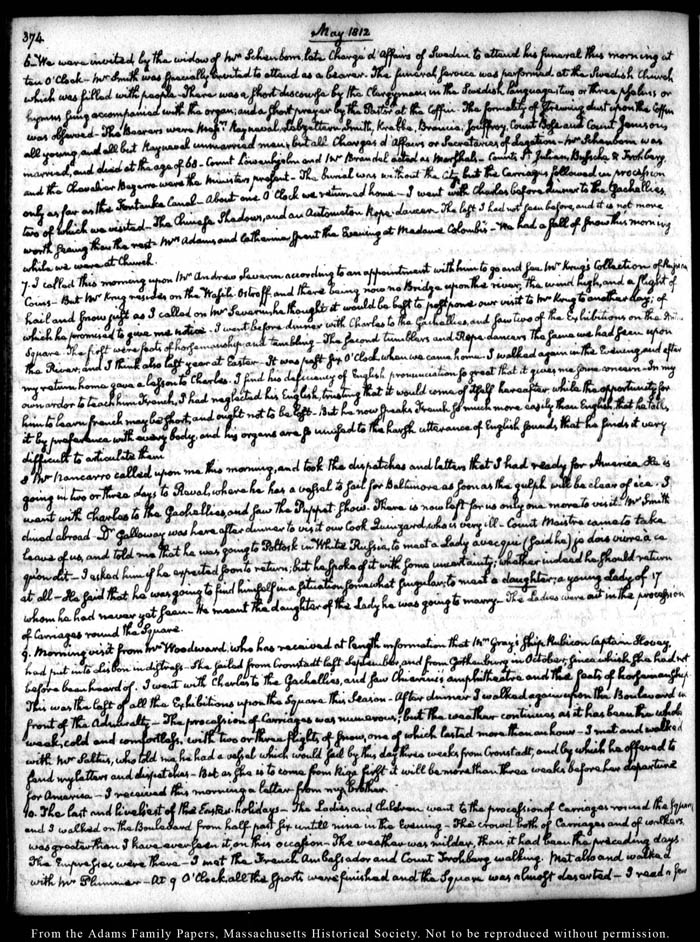 374
May 1812
6. We were invited, by the widow of Mr Schenbom, late Chargé d'Affaires of Sweden to attend his funeral this morning at
ten O'Clock — Mr Smith was specially invited to attend as a bearer. The funeral service was performed at the Swedish Church
which was filled with people. There was a short discourse by the Clergyman, in the Swedish language; two or three psalms or
hymns sung accompanied with the organ; and a short prayer by the Pastor at the Coffin. The formality of strewing dust upon the Coffin
was observed. The Bearers were Messrs Raynaval, Smith, Krabbe, Brancia, Jouffroy, Count Bose and Count Jenison;
all young, and all but Raynaval unmarried men; but all Chargés d'Affaires or Secretaries of Legation — Mr Schenbom was
married, and died at the age of 68 — Count Löwenhjelm and Mr Brandel acted as Marshals — Counts St Julien, Bussche & Frohberg,
and the Chevalier Bezerra were the Ministers present — The burial was without the City but the Carriages followed in procession
only as far as the Fontanka Canal — About one O'Clock we returned home — I went with Charles before dinner to the Gachellies,
two of which we visited — The Chinese Shadows, and an Automaton Rope-dancer. The last I had not seen before, and it is not more
worth seeing than the rest. Mrs Adams and Catherine spent the Evening at Madame Colombi's — We had a fall of snow this morning
while we were at Church.
7. I called this morning upon Mr Andrew Severin according to an appointment with him to go and see Mr Krug's Collection of Russian
Coins — But Mr Krug resides on the Wasili-Ostroff, and there being now no Bridge upon the river, the wind high, and a flight of
hail and snow just as I called on Mr Severin, he thought it would be best to postpone our visit to Mr Krug to another day; of
which he promised to give me notice. I went before dinner with Charles to the Gachellies, and saw two of the Exhibitions on the
Square. The first were feats of horsemanship and tumbling. The second tumblers and Rope dancers the same we had seen upon
the River, and I think also last year at Easter. It was past five O'Clock when we came home. I walked again in the Evening and after
my return home gave a lesson to Charles. I find his deficiency of English pronunciation so great that it gives me some concern. In my
own ardor to teach him French, I had neglected his English, trusting that it would come of itself hereafter, while the opportunity for
him to learn french may be short, and ought not to be lost. But he now speaks French so much more easily than English, that he talks
it by preference with every body, and his organs are so unused to the harsh utterance of English sounds, that he finds it very
difficult to articulate them.
8. Mr Nancarro called upon me this morning, and took the dispatches and letters that I had ready for America. He is
going in two or three days to Reval, where he has a vessel to sail for Baltimore as soon as the gulph will be clear of ice. I
went with Charles to the Gachellies and saw the Puppet Show. There is now left for us only one more to visit. Mr Smith
dined abroad — Dr Galloway was here after dinner to visit our Cook Quinzard, who is very ill — Count Maistre came to take
leave of us, and told me that he was going to Polotsk in White Russia, to meet a Lady avec qui (said he) je dois
— I asked him if he expected soon to return; but he spoke of it with some uncertainty; whether indeed he should return
at all — He said that he was going to find himself in a situation somewhat singular; to meet a daughter; a young Lady of 17
whom he had never yet seen. He meant the daughter of the Lady he was going to marry. The Ladies were out in the procession
of Carriages round the Square.
9. Morning visit from Mr Woodward, who has received at length information that Mr Gray's Ship Rubicon Captain Slovey
had put into Lisbon in distress. She sailed from Cronstadt last September, and from Gothenburg in October; since which she had not
before been heard of. I went with Charles to the Gachellies, and saw Chiarini's amphitheatre and the feats of horsemanship.
This was the last of all the Exhibitions upon the Square this Season — After dinner I walked again upon the Boulevard in
front of the Admiralty — The procession of Carriages was numerous; but the weather continues as it has been the whole
week, cold and comfortless, with two or three flights of snow, one of which lasted more than an hour — I met and walked
with Mr Saltus, who told me he had a vessel which would sail by this day three weeks from Cronstadt, and by which he offered to
send my letters and dispatches — But as she is to come from Riga first it will be more than three weeks before her departure
for America — I received this morning a letter from my brother.
10. The last and liveliest of the Easter holidays — The Ladies and children went to the procession of Carriages round the Square,
and I walked on the Boulevard from half past six untill nine in the Evening — The crowd both of Carriages and of walkers,
was greater than I have ever seen it, on this occasion — The weather was milder, than it had been the preceding days.
The Empresses were there — I met the French Ambassador and Count Frohberg walking. Met also and walked
with Mr Plummer — At 9 O'Clock, all the sports were finished and the Square was almost deserted — I read a few
From the Adams Family Papers, Massachusetts Historical Society. Not to be reproduced without permission.